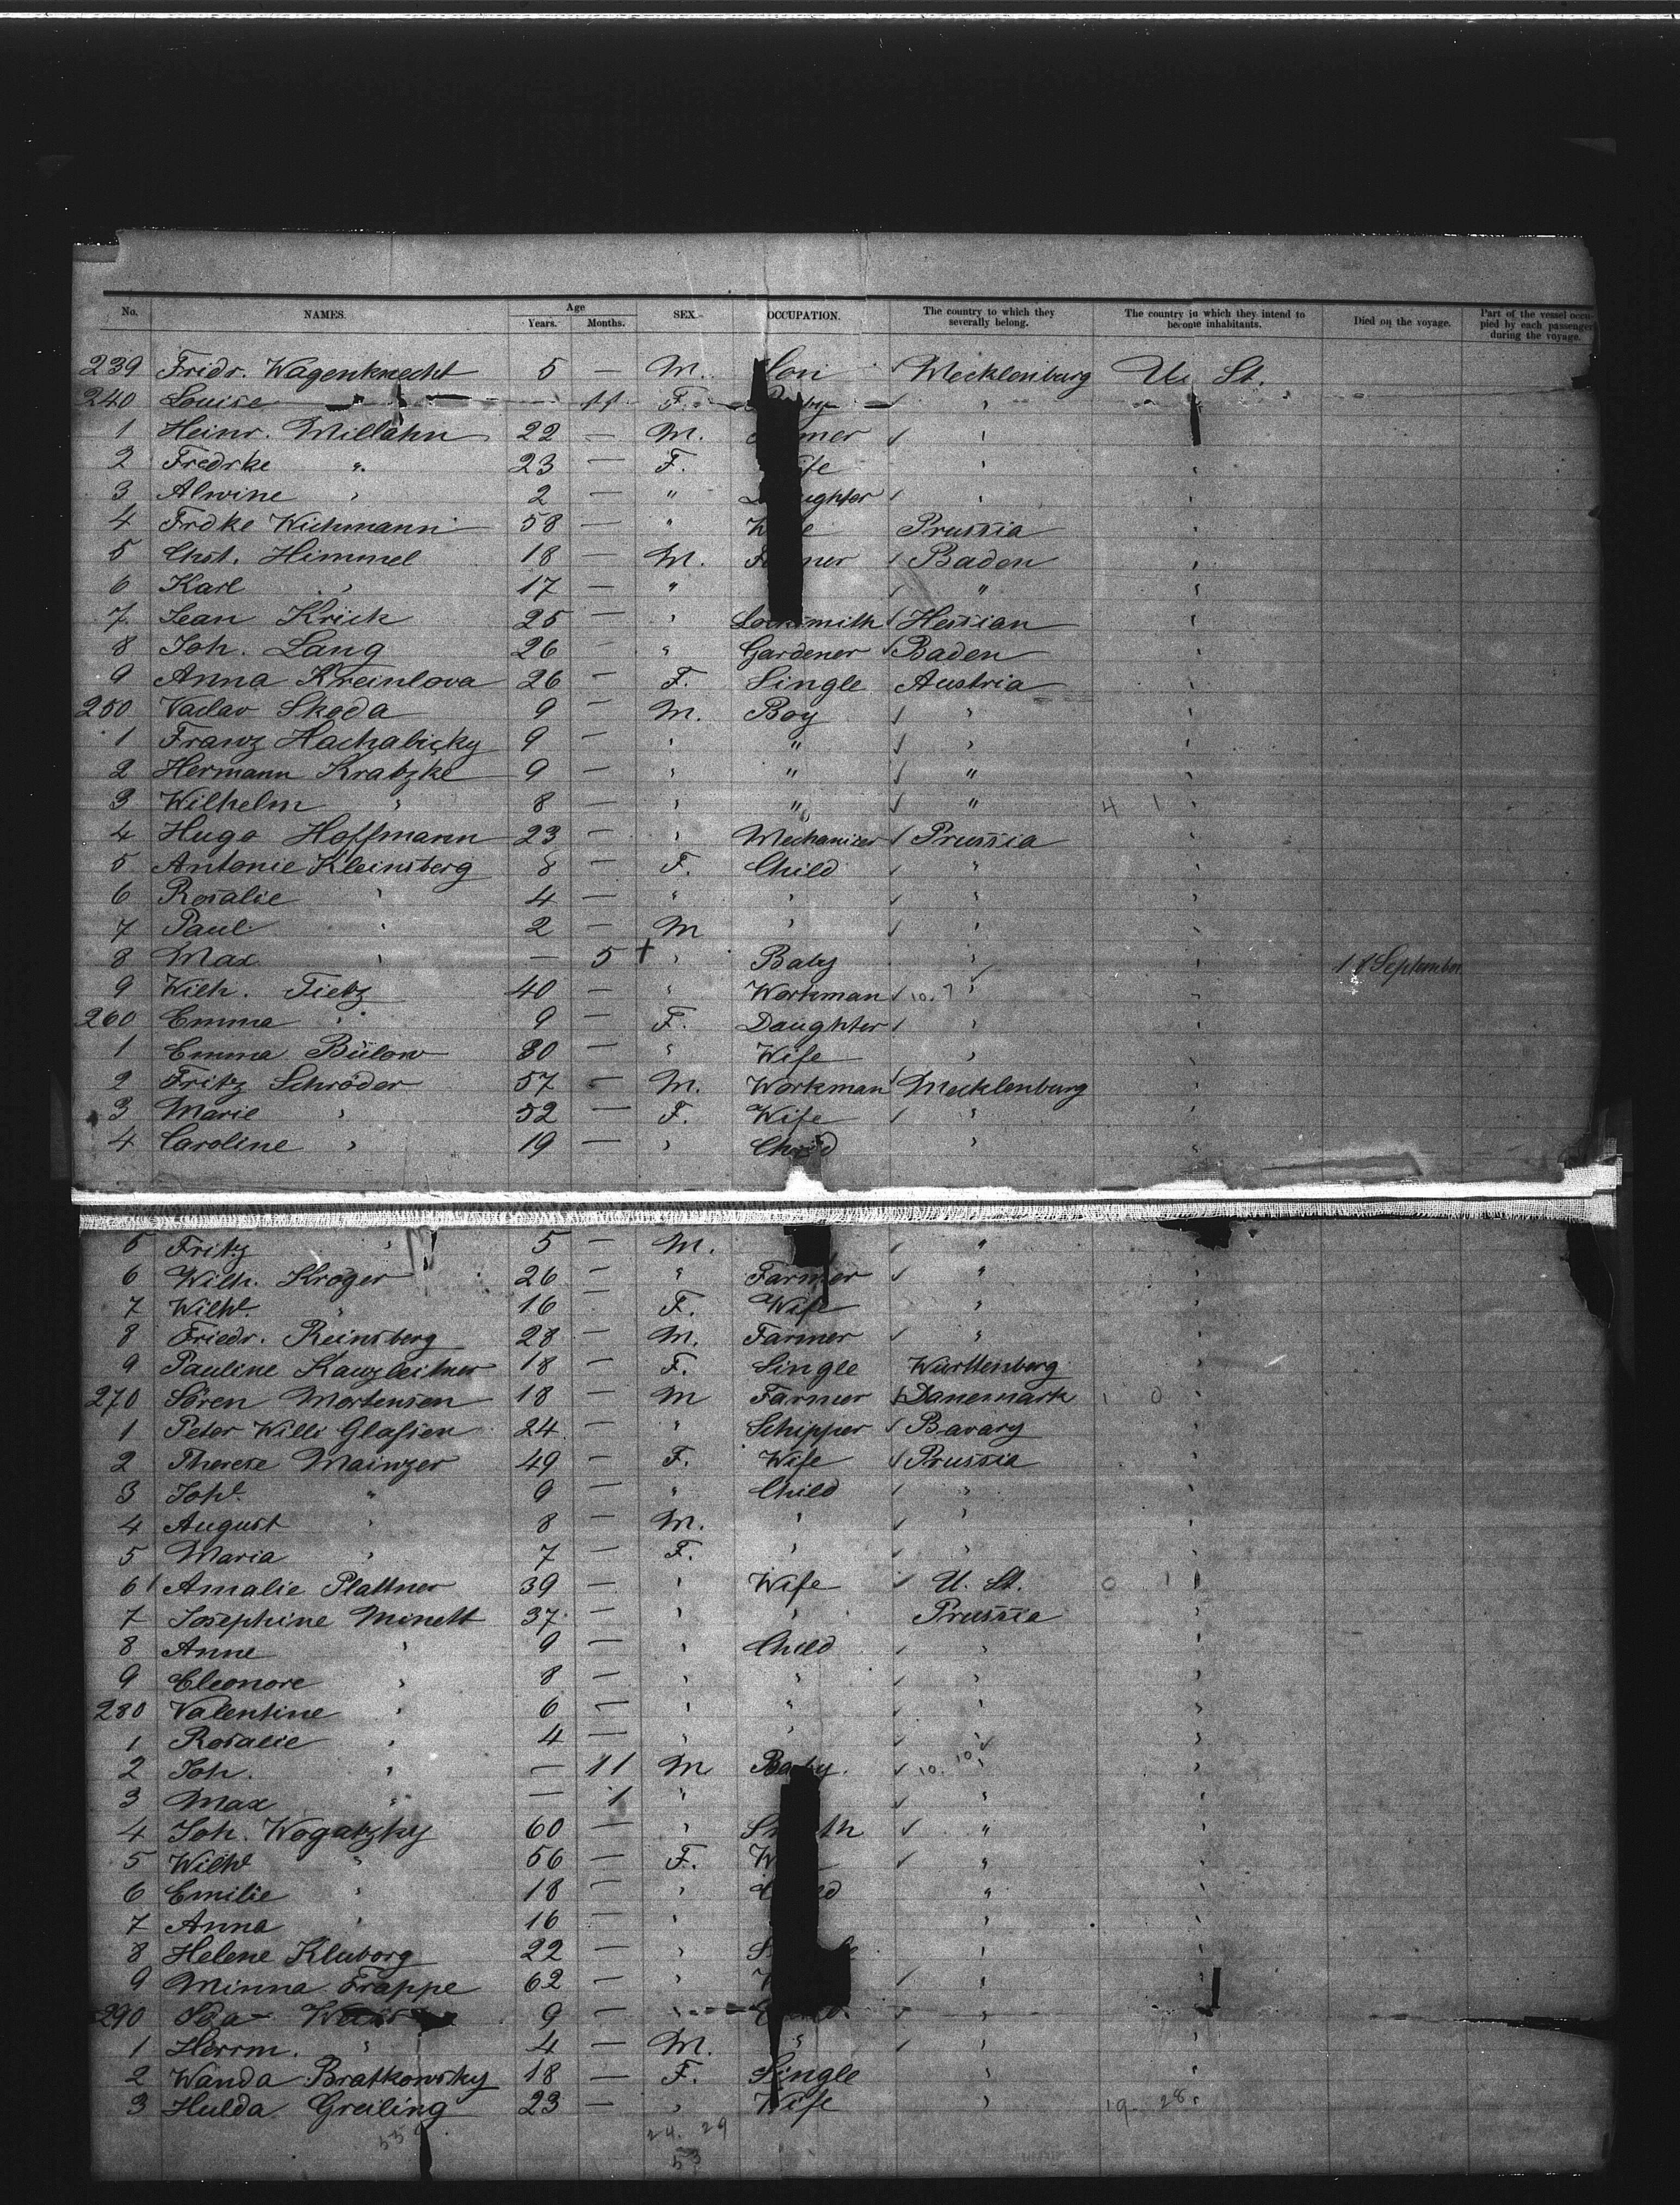 No. NAMES. Age Years. Months. SEX. OCCUPATION. The country to which they severally belong. The country in which they intend to become inhabitants. Died on the voyage. Part of the vessel occupied by each passenger during the voyage.
239 Fridr. Wagenknecht 5 — M. Son Mecklenburg U. St.
240 Louise 11 F. Baby "
1 Heinr. Millahn 22 — M. "
2 Fredrke " 23 — F. "
3 Alwine " 2 — " Daughter "
4 Frdke Wichmann 58 — " Prussia "
5 Chst. Himmel 18 — M. Baden "
6 Karl " 17 — " " "
7 Jean Krick 25 — " Locksmith Hessian "
8 Joh. Lang 26 — " Gardener Baden "
9 Anna Kreinlova 26 — F. Single Austria "
250 Vaclav Skoda 9 — M. Boy " "
1 Franz Hachalicky 9 — " " " "
2 Hermann Kratzke 9 — " " " "
3 Wilhelm " 8 — " " " 4 1 "
4 Hugo Hoffmann 23 — " Mechaniker Prussia "
5 Antonie Kleinsberg 8 — F. Child " "
6 Rosalie " 4 — " " " "
7 Paul " 2 — M " " "
8 Max " — 5 + " Baby " " 11 September
9 Wilh. Tietz 40 — " Workman 10. 7 " "
260 Emma " 9 — F. Daughter " "
1 Emma Bülow 30 — " Wife " "
2 Fritz Schröder 57 — M. Workman Mecklenburg "
3 Marie " 52 — F. Wife " "
4 Caroline " 19 — " Child " "
5 Fritz " 5 — M. " "
6 Wilh. Kröger 26 — " Farmer " "
7 Wilhe. " 16 — F. Wife " "
8 Friedr. Reinsberg 28 — M. Farmer " "
9 Pauline Kanzleitner 18 — F. Single Württenberg "
270 Sören Mortensen 18 — M Farmer Danemark 1 0 "
1 Peter Willi Glassen 24 — " Schipper Bavary "
2 Therese Mainzer 49 — F. Wife Prussia "
3 Johe. " 9 — " Child " "
4 August " 8 — M. " " "
5 Maria " 7 — F. " " "
6 Amalie Plattner 39 — " Wife U. St. 0 1 "
7 Josephine Minett 37 — " " Prussia "
8 Anne " 9 — " Child " "
9 Eleonore " 8 — " " " "
280 Valentine " 6 — " " " "
1 Rosalie " 4 — " " " "
2 Joh. " — 11 M Baby 10. 10 " "
3 Max " — 1 " " "
4 Joh. Wogatzky 60 — " Smith " "
5 Wilhe " 56 — F. " "
6 Emilie " 18 — " Child " "
7 Anna " 16 — " " "
8 Helene Kluborg 22 — " " "
9 Minna Frappe 62 — " " "
290 Ida 9 — " Child " "
1 Herrm. " 4 — M. " " "
2 Wanda Bratkowsky 18 — F. Single " "
3 Hulda Greiling 23 — " Wife " 19. 28 "
55 24. 29
53